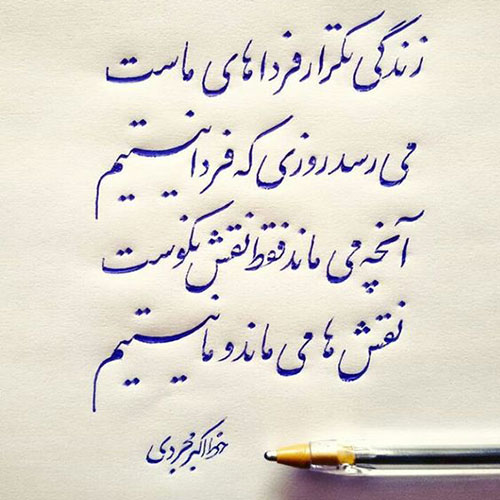 زندگی تکرار فرداهای ماست
می رسد روزی که فردا نیستیم
آنچه می ماند فقط نقش نکوست
نقش ها می ماند و ما نیستیم
خط اکبر خردی